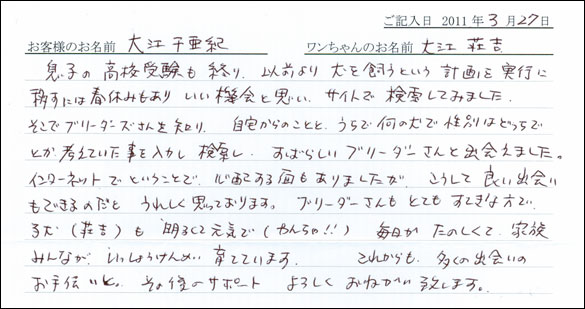 ご記入日 2011年3月27日
お客様のお名前 大江千亜紀 ワンちゃんのお名前 大江 荘吉
息子の高校受験も終り、以前より犬を飼うという計画を実行に
移すには春休みもあり いい機会と思い、サイトで検索してみました。
そこでブリーダーズさんを知り、自宅からのことと、うちで何の犬で性別はどっちで
とか考えていた事を入力し 検索し、すばらしいブリーダーさんと出会えました。
インターネットでということで、心配する面もありましたが、こうして良い出会い
もできるのだと うれしく思っております。ブリーダーさんも とても すてきな方で、
子犬(荘吉)も 明るくて元気で(やんちゃ!!) 毎日が たのしくて、家族
みんなが、いっしょうけんめい 育てています。 これからも、多くの出会いの
お手伝いと、その後のサポート よろしく おねがい致します。